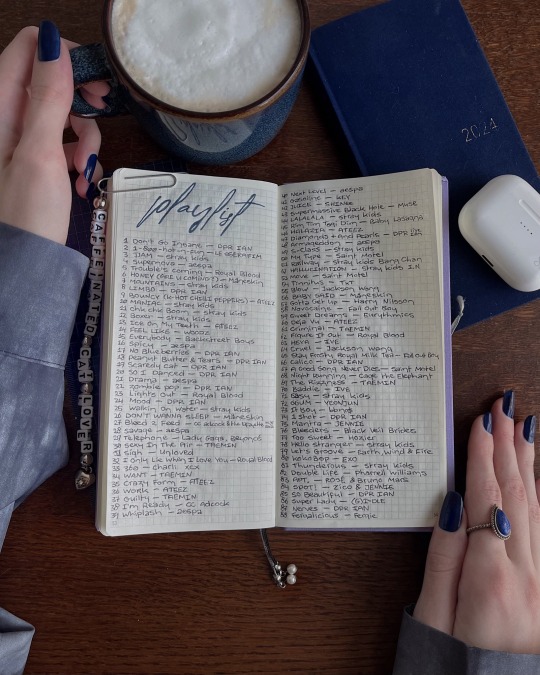 playlist
1 Don't Go Insane — DPR IAN
2 1-800-hot-n-fun — LE SSERAFIM
3 JJAM — stray kids
4 Supernova — aespa
5 Trouble's coming — Royal Blood
6 HONEY (ARE U COMING?) — Måneskin
7 Mountains — stray kids
8 LIMBO — DPR IAN
9 BOUNCY (K-HOT CHILLI PEPPERS) — ATEEZ
10 MANIAC — stray kids
11 Chk Chk Boom — stray kids
12 Boxer — stray kids
13 Ice On My Teeth — ATEEZ
14 FEEL LIKE — WOODZ
15 Everybody — Backstreet Boys
16 Spicy — aespa
17 No Blueberries — DPR IAN
18 Peanut Butter & Tears — DPR IAN
19 Scaredy Cat — DPR IAN
20 So I Danced — DPR IAN
21 Drama — aespa
22 Zombie pop — DPR IAN
23 Lights Out — Royal Blood
24 Mood — DPR IAN
25 Walkin On Water — stray kids
26 I DON'T WANNA SLEEP — Måneskin
27 Bleed 2 Feed —
28 Savage — aespa
29 Telephone — Lady Gaga, Beyoncé
30 Sexy In The Air — TAEMIN
31 Sigh — Unloved
32 I Only Lie When I Love You — Royal Blood
33 360 — charli xcx
34 WANT — TAEMIN
35 Crazy Form — ATEEZ
36 Work — ATEEZ
37 Guilty — TAEMIN
38 I'm Ready — CC Adcock
39 Whiplash — aespa
40 Next Level — aespa
41 Gasoline — KEY
42 JUICE — SHINee
43 Supermassive Black Hole — Muse
44 LALALALA — stray kids
45 Rim Tim Tagi Dim — Baby Lasagna
46 HALAZIA — ATEEZ
47 Diamonds + And Pearls — DPR IAN
48 Armageddon — aespa
49 S-Class — stray kids
50 My Type — Saint Motel
51 Railway — stray kids Bang Chan
52 HALLUCINATION — stray kids I.N
53 Move — Saint Motel
54 Tinnitus — TXT
55 Blow — Jackson Wang
56 BABY SAID — Måneskin
57 Gotta Get Up — Harry Nilsson
58 Novocaine — Fall Out Boy
59 Sweet Dreams — Eurythmics
60 Deja Vu — ATEEZ
61 Criminal — TAEMIN
62 Figure It Out — Royal Blood
63 HEYA — IVE
64 Cruel — Jackson Wang
65 Stay Frosty Royal Milk Tea — Fall Out Boy
66 Calico — DPR IAN
67 A Good Song Never Dies — Saint Motel
68 Night Running — Cage the Elephant
69 The Rizzness — TAEMIN
70 Baddie — IVE
71 Easy — stray kids
73 It Boy —
74 1 Shot — DPR IAN
75 Mantra — JENNIE
76 Bleeders — Black Veil Brides
77 Too Sweet — Hozier
78 Hello Stranger — stray kids
79 Let's Groove — Earth, Wind & Fire
80 Ko Ko Bop — EXO
81 Thunderous — stray kids
82 Double Life — Pharrell Williams
83 APT. — ROSÉ & Bruno Mars
84 SPOT! — Zico & JENNIE
85 So Beautiful — DPR IAN
86 Super Lady — (G)I-DLE
87 Nerves — DPR IAN
88 Fergalicious — Fergie
CAFFEINATED CAT LOVER
2024